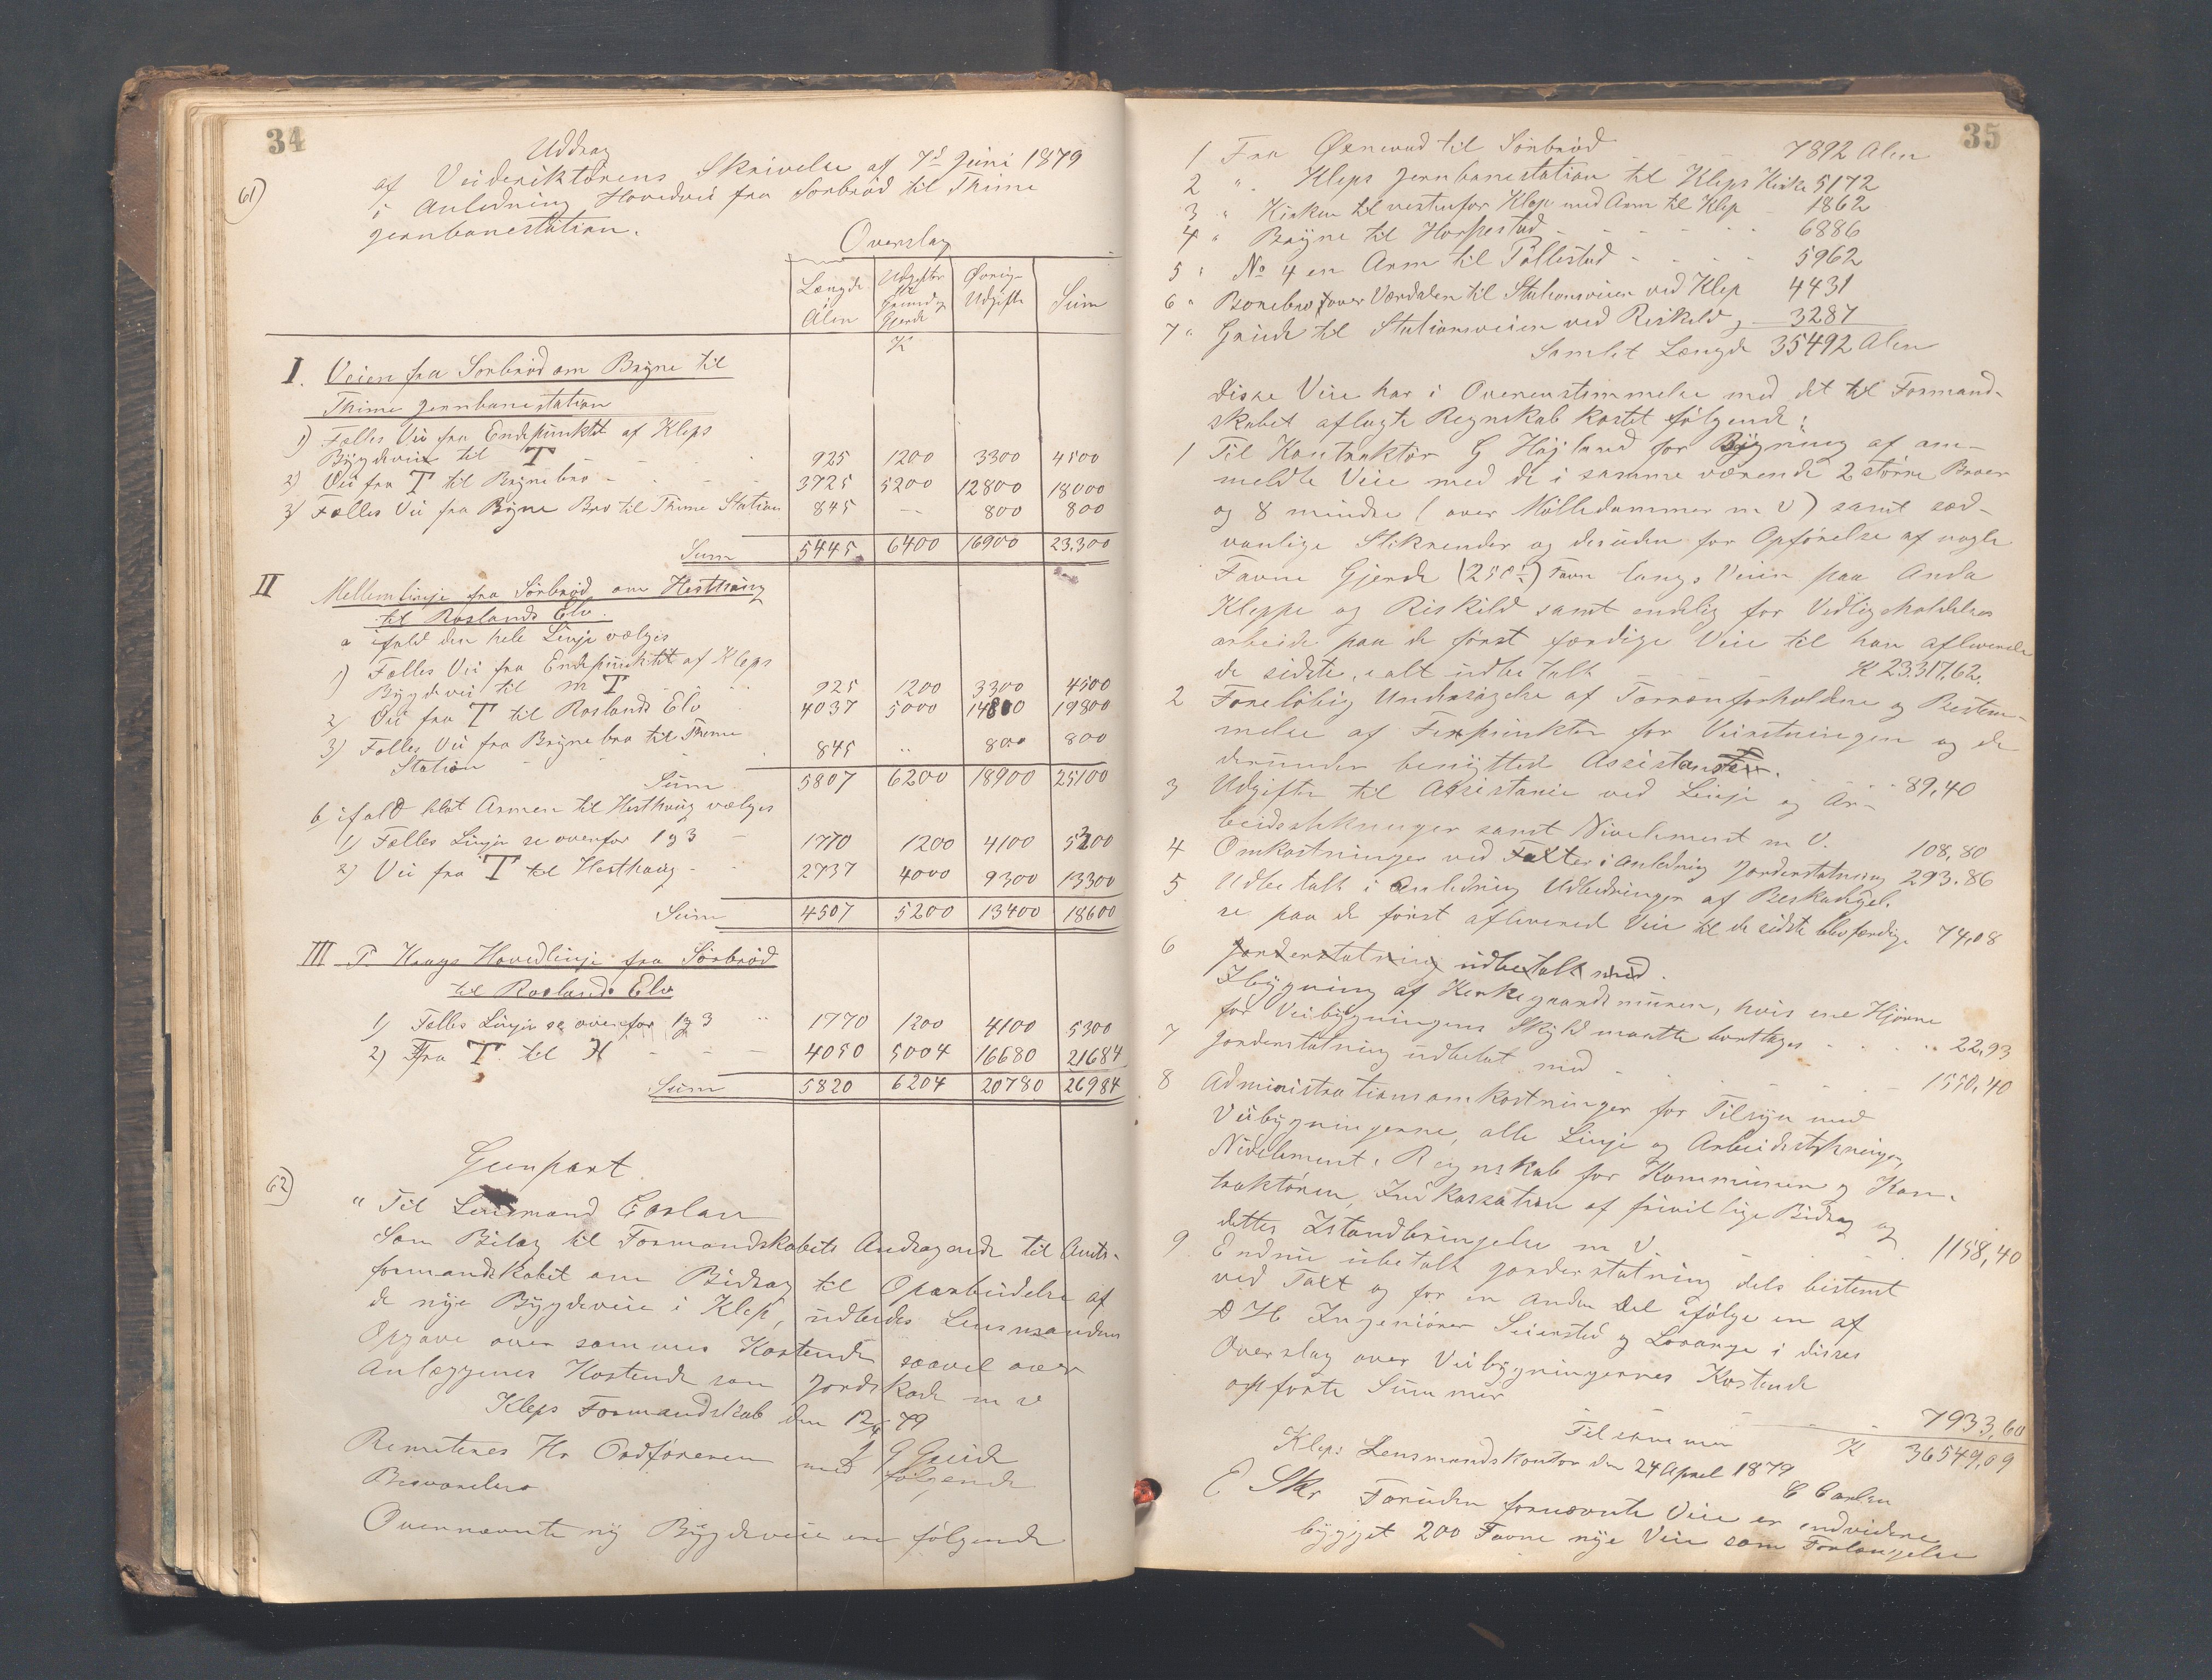 34
61)
Uddrag
af Veidirektörens Skrivelse af 7d Juni 1879
i Anledning Hovedvei fra Sörbröd til Thime
Jernbanestation.
Overslag
Længde Alen | Udgifter til Grund og Gjerde | Övrige Udgifter | Sum
K
I. Veien fra Sörbröd om Bryne til
Thime Jernbanestation
1) Fælles Vei fra Endepunktet af Kleps
Bygdevei til T 925 1200 3300 4500
2) Vei fra T til Brynebro 3725 5200 12800 18000
3) Fælles Vei fra Bryne Bro til Thime Station 845 800 800
Sum 5445 6400 16900 23.300
II Mellemlinje fra Sörbröd om Hesthaug
til Roslands Elv.
a ifald den hele Linje vælges
1) Fælles Vei fra Endepunktet af Kleps
Bygdevei til T 925 1200 3300 4500
2) Vei fra T til Roslands Elv 4037 5000 14800 19800
3) Fælles Vei fra Brynebro til Thime
Station 845 " 800 800
Sum 5807 6200 18900 25100
b ifald blot Armen til Hesthaug vælges
1) Fælles Linjer se ovenfor 1 og 3 1770 1200 4100 5300
2) Vei fra T til Hesthaug 2737 4000 9300 13300
Sum 4507 5200 13400 18600
III T. Krags Hovedlinje fra Sörbröd
til Roslands Elv
1) Fælles Linjer se ovenfor 1 og 3 1770 1200 4100 5300
2) Fra T til H 4050 5004 16680 21684
Sum 5820 6204 20780 26984
62)
Genpart
" Til Lensmand
Som Bilag til Formandskabets Andragende til Amts-
formandskabet om Bidrag til Oparbeidelse af
de nye Bygdeveie i Klep, udbedes Lensmandens
Opgave over sammes Kostende saavel over
Anlæggenes Kostende som Jordskade m v
Kleps Formandskab den 12/4 79
J G Grude
Remitteres Hr Ordföreren med følgende
Besvarelse
Ovennævnte ny Bygdeveie ere følgende
35
1 Fra til Sörbröd 7892 Alen
2 " Kleps Jernbanestation til Kleps Kirke 5172
3 " Kirken til vestenfor Klep med Arm til Klep 1862
4 " Bryne til Horpestad 6886
5 " No 4 en Arm til Pollestad 5962
6 " Borebro over Værdalen til Stationsveien ved Klep 4431
7 " Grude til Stationsveien ved Riskild 3287
Samlet Længde 35492 Alen
Disse Veie har i Overensstemmelse med det til Formand-
skabet aflagte Regnskab kostet følgende:
1 Til Kontraktör G Höjland for Bygning af an-
meldte Veie med de i samme værende 2 större Broer
og 8 mindre (over Mölledammer m v) samt sæd-
vanlige Stikrender og desuden for Opförelse af nogle
Favne Gjerde (250 1/2) Favn langs Veien paa Anda
Kleppe og Riskild samt endelig for Vedligeholdelses
arbeide paa de först færdige Veie til han afleverede
de sidste, ialt udbetalt K 23317,62.
2 Forelöbig Undersögelse af Terrænforholdene og Bestem-
melse af Fixpunkter for Veiretningen og de
derunder benyttede Assistenter. 89,40
3 Udgifter til Assistance ved Linje og Ar-
beidsstikninger samt Nivellement m V. 108,80
4 Omkostninger ved Taxter i Anledning Jorderstatning 293.86
5 Udbetalt i Anledning Udbedringer af Beskadigel-
se paa de först afleverede Veie til de sidste blev færdige 74,08
6 Jorderstatning udbetalt med.
Ibygning af Kirkegaardsmuren, hvis ene Hjörne
for Veibygningens Skyld maatte borttages 22,93
7 Jorderstatning udbetalt med 1550,40
8 Administrationsomkostninger for Tilsyn med
Veibygningerne, alle Linje og Arbeidsstikninger,
Nivellement, Regnskab for Kommunen og Kon-
traktören, Inkassation af frivillige Bidrag og
dettes Istandbringelse m V 1158,40
9 Endnu ubetalt Jorderstatning dels bestemt
ved Taxt og for en Anden Del ifølge en af
D H Ingeniörer Seiersted og Lorange i disses
Overslag over Veibygningernes Kostende
opförte Summer 7933,60
Tilsammen K 36549,09
Kleps Lensmandskontor den 24 April 1879
E Skr Foruden fornævnte Veie er endvidere
bygget 200 Favne nye Veie som Forlængelse